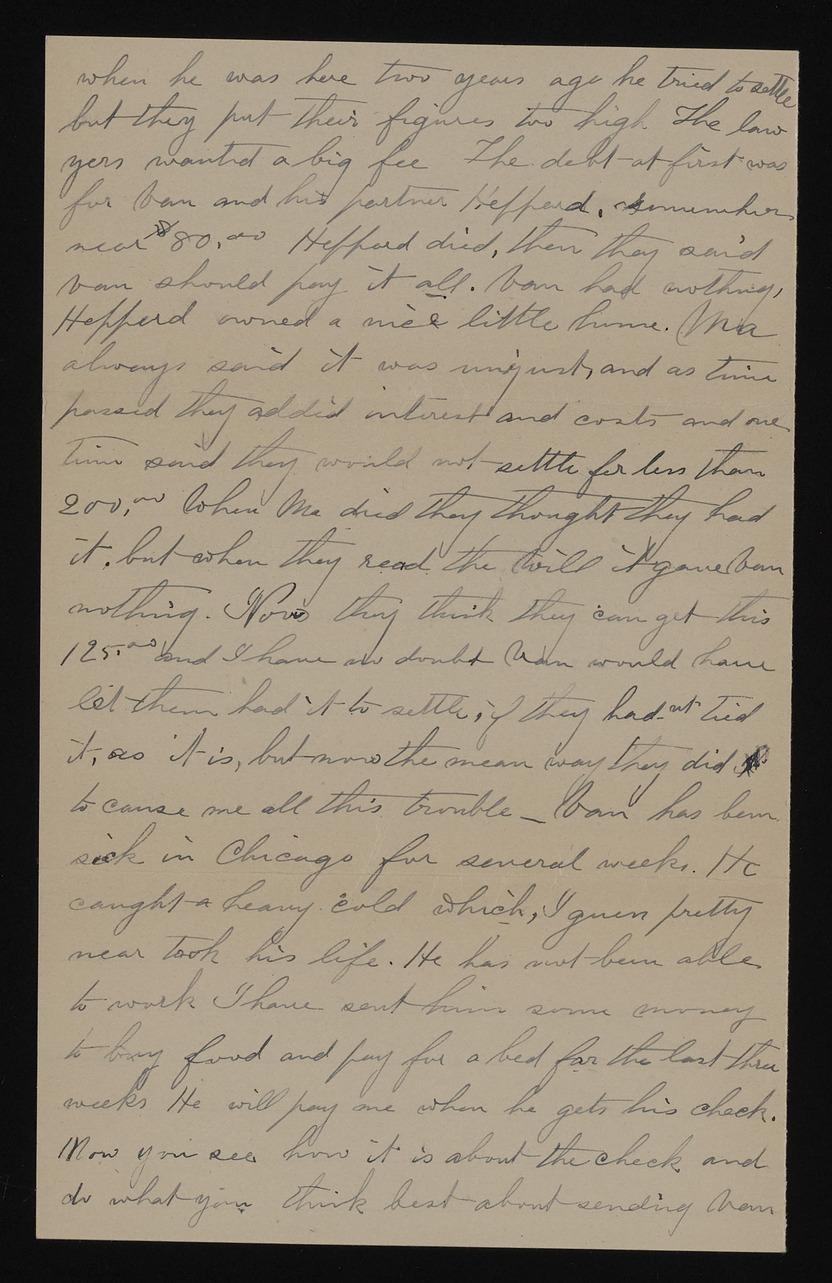 when he was here two years ago he tried to settle
but they put their figures too high The law
yers wanted a big fee The debt at first was
for Van and his partner Hefferd, somewhere
near $80.00 Hefferd died, then they said
Van should pay it all. Van had nothing,
Hefferd owned a nice little home. Ma
always said it was unjust, and as time
passed they added interest and costs and one
time said they would not settle for less than
200.00 When Ma died they thought they had
it, but when they read the Will it gave Van
nothing. Now they think they can get this
125.00 and I have no doubt Van would have
let them had it to settle, if they had-nt tied
it, as it is, but now the mean way they did
to cause me all this trouble — Van has been
sick in Chicago for several weeks. He
caught a heavy cold which, I guess pretty
near took his life. He has not been able
to work I have sent him some money
to buy food and pay for a bed for the last three
weeks He will pay me when he gets his check.
Now you see how it is about the check and
do what you think best about sending Van